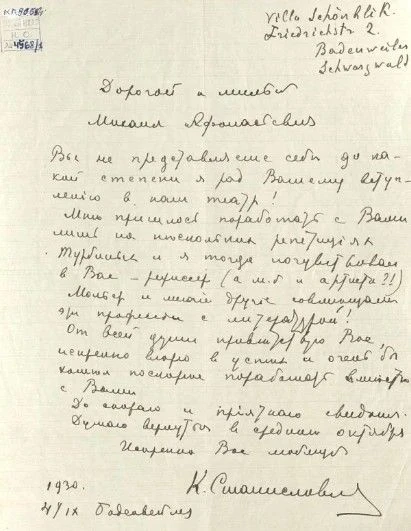 Villa Schönblik.
Friedrichstr 2.
Badenweiler
Schwarzwald
Дорогой и милый
Михаил Афонасевич
Вы не представляете себе до ка-
кой степени я рад Вашему вступ-
лению в наш театр!
Мне пришлось поработать с Вами
лишь на нескольких репетициях
Турбиных и я тогда почувствовал
в Вас – режиссера (а м.б. и артиста?!)
Мольер и многие другие совмещали
эти профессии с литературой!
От всей души приветствую Вас,
искренно верю в успех и очень бы
хотел поскорее поработать вместе
с Вами.
До скорого и приятного свидания.
Думаю вернуться в средних октября
Искренно Вас любящий
К. Станиславский
1930.
4/IX Баденвейлер